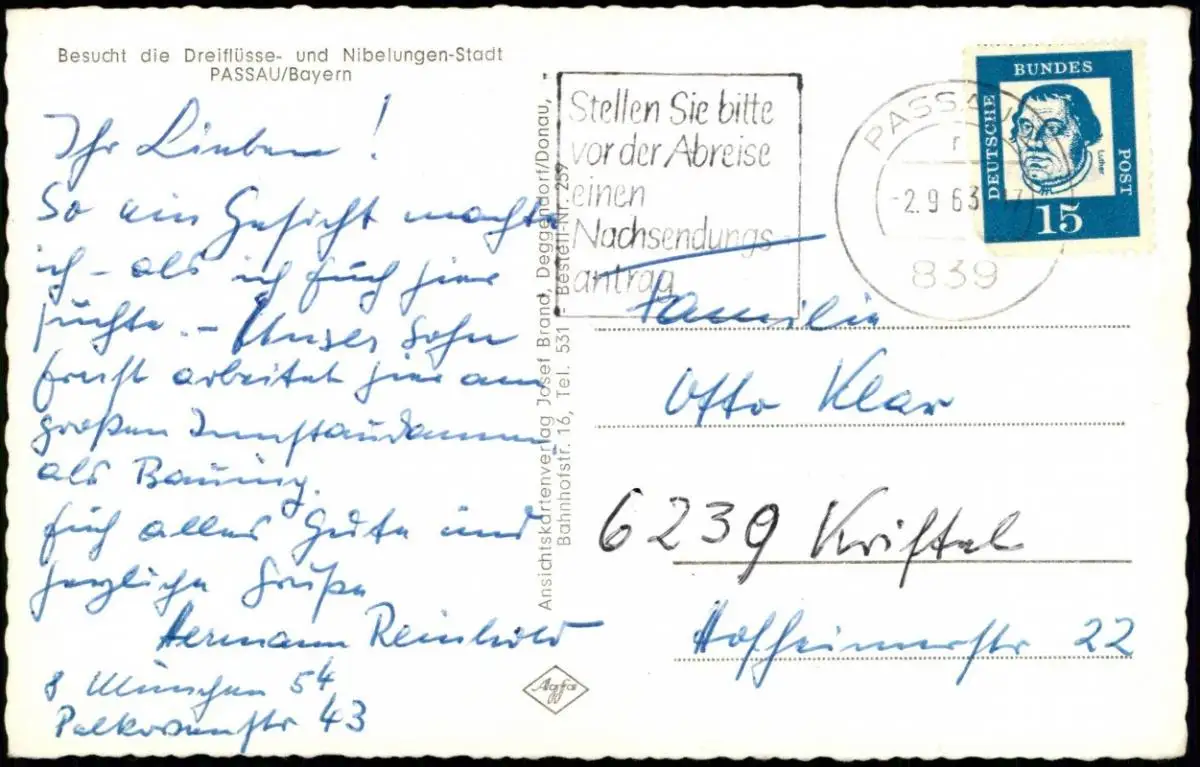 Besucht die Dreiflüsse- und Nibelungen-Stadt
PASSAU/Bayern
Ihr Lieben!
So ein Gesicht machte
ich - als ich Euch hier
suchte. - Unser Sohn
Ernst arbeitet hier am
großen Innstaudamm,
als Bauing.
Euch alles Gute und
herzliche Grüße
Hermann Reinhold
8 München 54
43
Ansichtskartenverlag Josef Brand, Deggendorf/Donau,
Bahnhofstr. 16, Tel. 531 - Bestell-Nr. 259
Agfa
Stellen Sie bitte
vor der Abreise
einen
Nachsendungs-
antrag
PASSAU
-2.9.63
839
DEUTSCHE
BUNDES
POST
Luther
15
Familie
Otto Klar
6239 Kriftel
Hofheimerstr 22